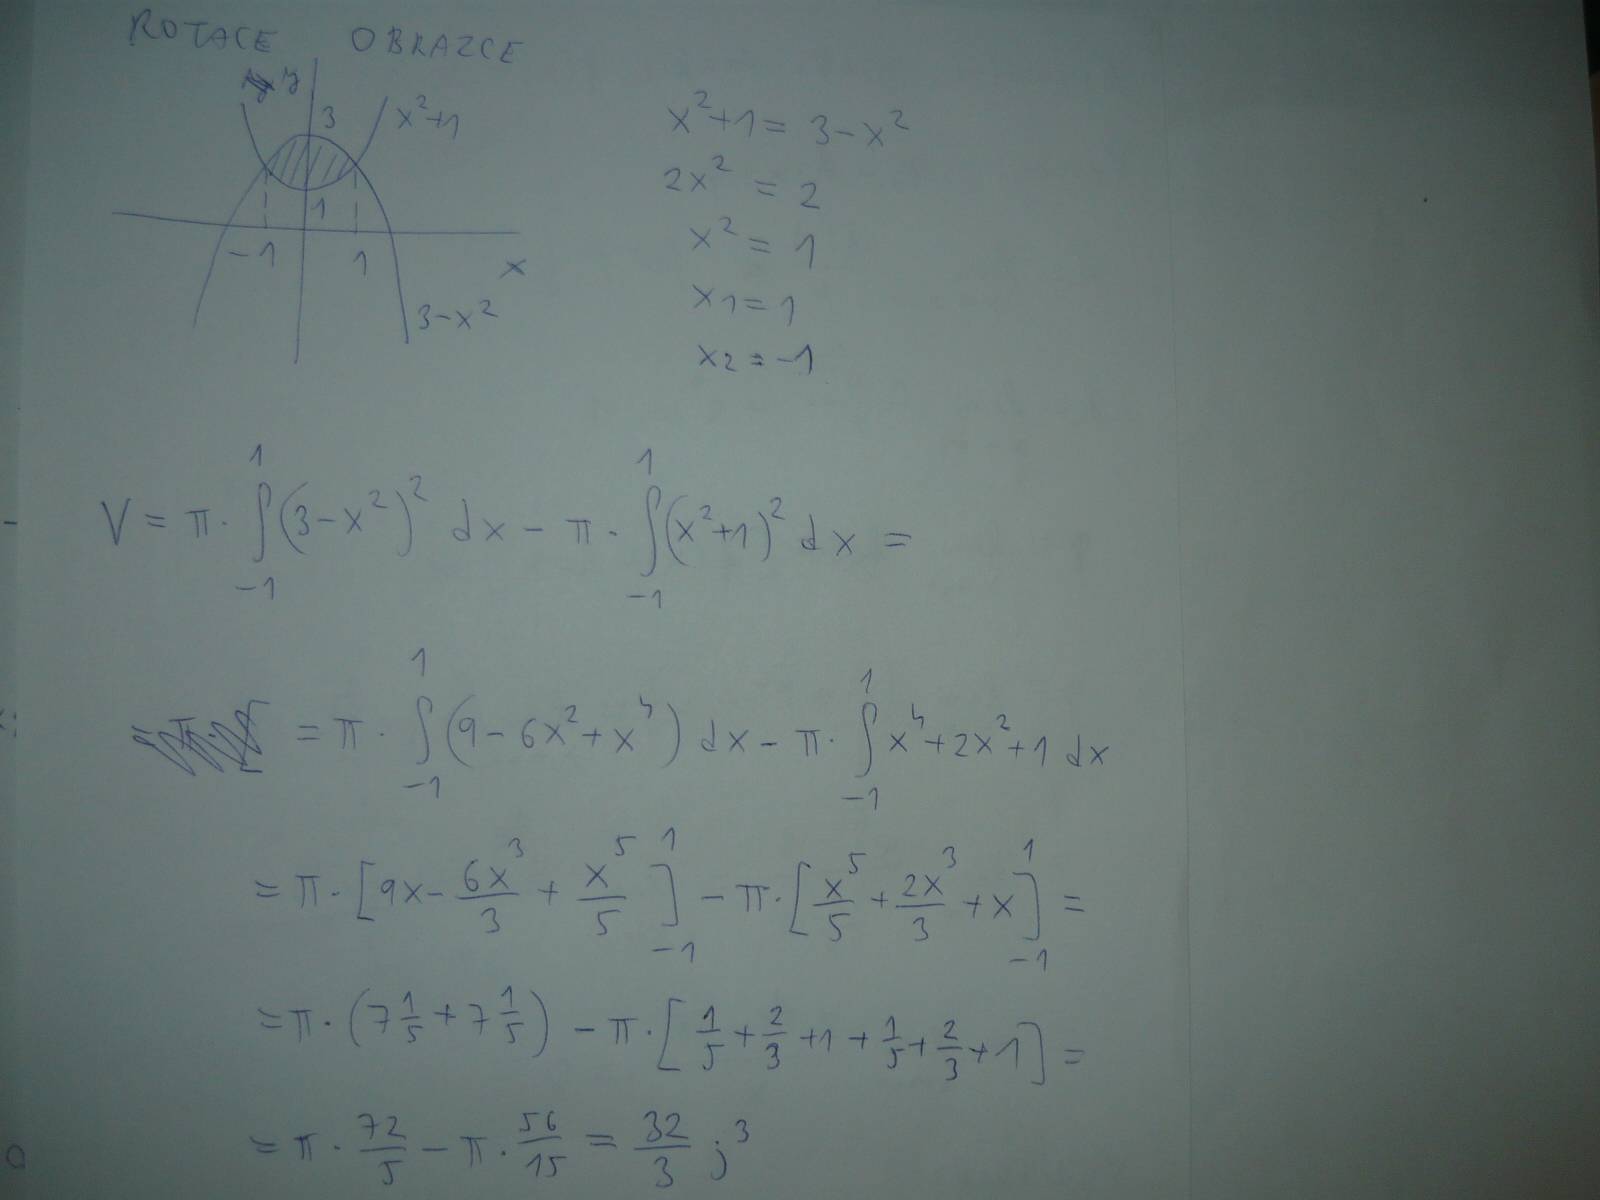 ROTACE OBRAZCE
y
3
x²+1
1
-1 1
x
3-x²
x²+1 = 3-x²
2x² = 2
x² = 1
x1 = 1
x2 = -1
V = π · ∫₋₁¹ (3-x²)² dx - π · ∫₋₁¹ (x²+1)² dx =
= π · ∫₋₁¹ (9-6x²+x⁴) dx - π · ∫₋₁¹ x⁴+2x²+1 dx
= π · [9x - 6x³/3 + x⁵/5]₋₁¹ - π · [x⁵/5 + 2x³/3 + x]₋₁¹ =
= π · (7 1/5 + 7 1/5) - π · [1/5 + 2/3 + 1 + 1/5 + 2/3 + 1] =
= π · 72/5 - π · 56/15 = 32/3 j³